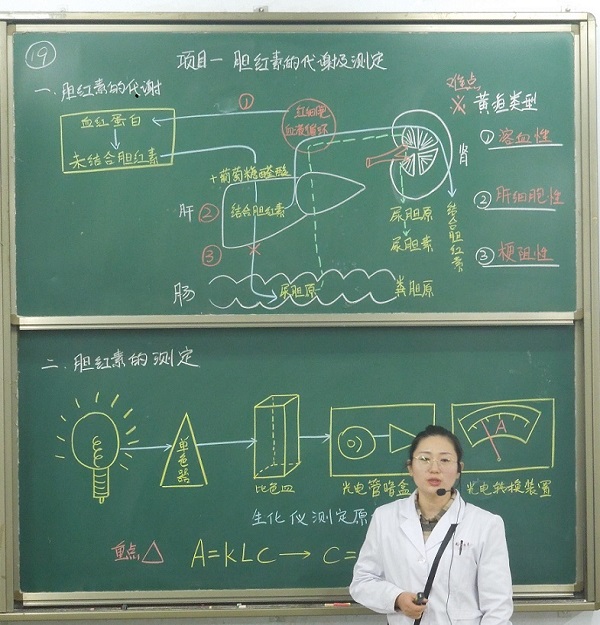 19
项目一 胆红素的代谢及测定
一.胆红素的代谢
难点
※ 黄疸类型
① 溶血性
② 肝细胞性
③ 梗阻性
①
红细胞
血液循环
血红蛋白
未结合胆红素
+葡萄糖醛酸
肝 ② 结合胆红素
③
肾
尿胆原
尿胆素
结合胆红素
肠
尿胆原
粪胆原
二.胆红素的测定
单色器
比色皿
光电管暗盒
A
光电转换装置
生化仪测定原
重点 △ A=KLC→C=